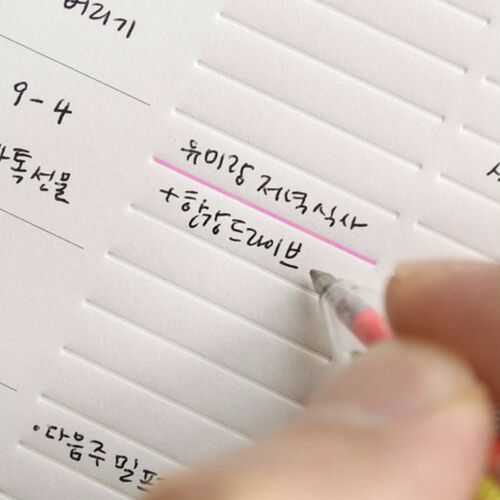 9-4
톡선물
유미랑 저녁식사
+ 한강드라이브
·다음주 밀프